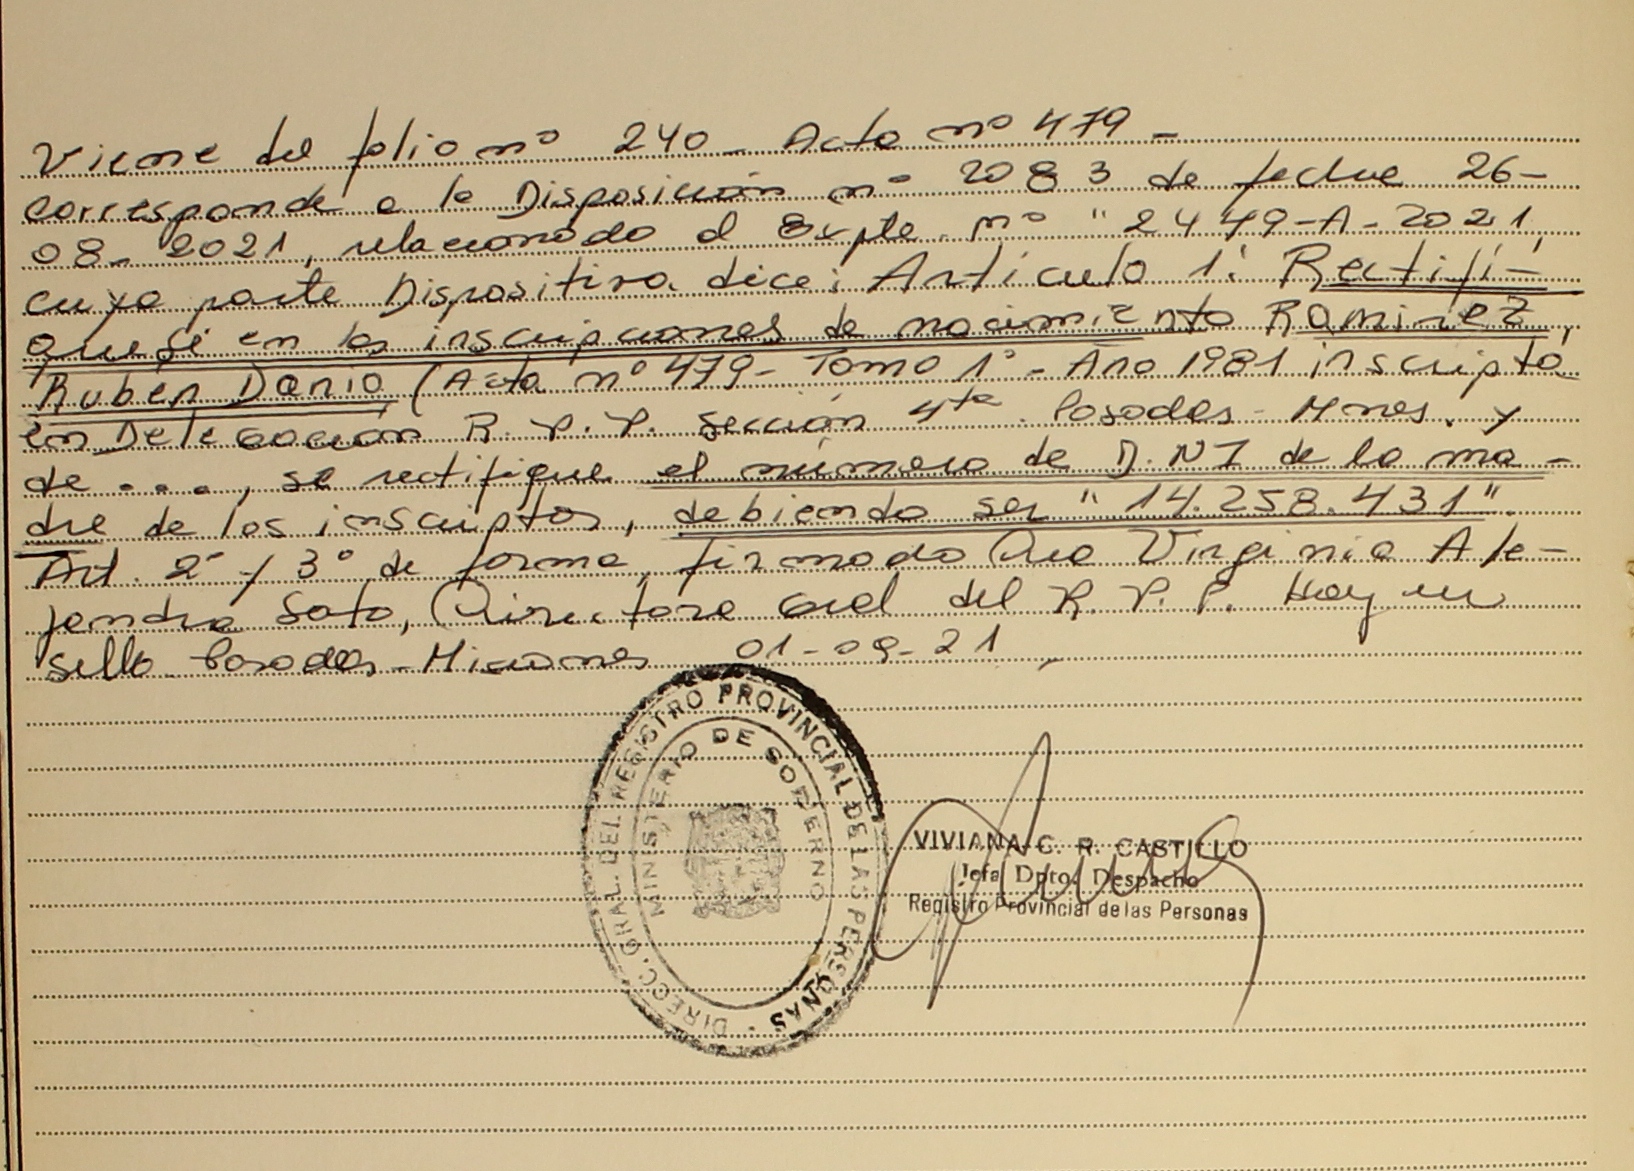 Viene del folio nº 240 - Acta nº 479 -
corresponde a la Disposición nº 2083 de fecha 26-
08-2021, relacionado al Expte. nº "2449-A-2021,
cuya parte Dispositiva dice: Artículo 1º: Rectifí-
quese en las inscripciones de nacimiento Ramirez,
Ruben Dario (Acta nº 479 - Tomo 1º - Año 1981 inscripta
en Delegación R. P. P. Sección 4ta. Posadas - Mnes. y
de ..., se rectifique el número de D.NI de la ma-
dre de los inscriptos, debiendo ser "14.258.431".
Art. 2º y 3º de forma, firmado Dra Virginia Ale-
jandra Soto, Directora Gral del R. P. P. Hay un
sello. Posadas - Misiones 01-09-21
DIRECC. GRAL. DEL REGISTRO PROVINCIAL DE LAS PERSONAS -
MINISTERIO DE GOBIERNO
VIVIANA C. R. CASTILLO
Jefa Dpto. Despacho
Registro Provincial de las Personas